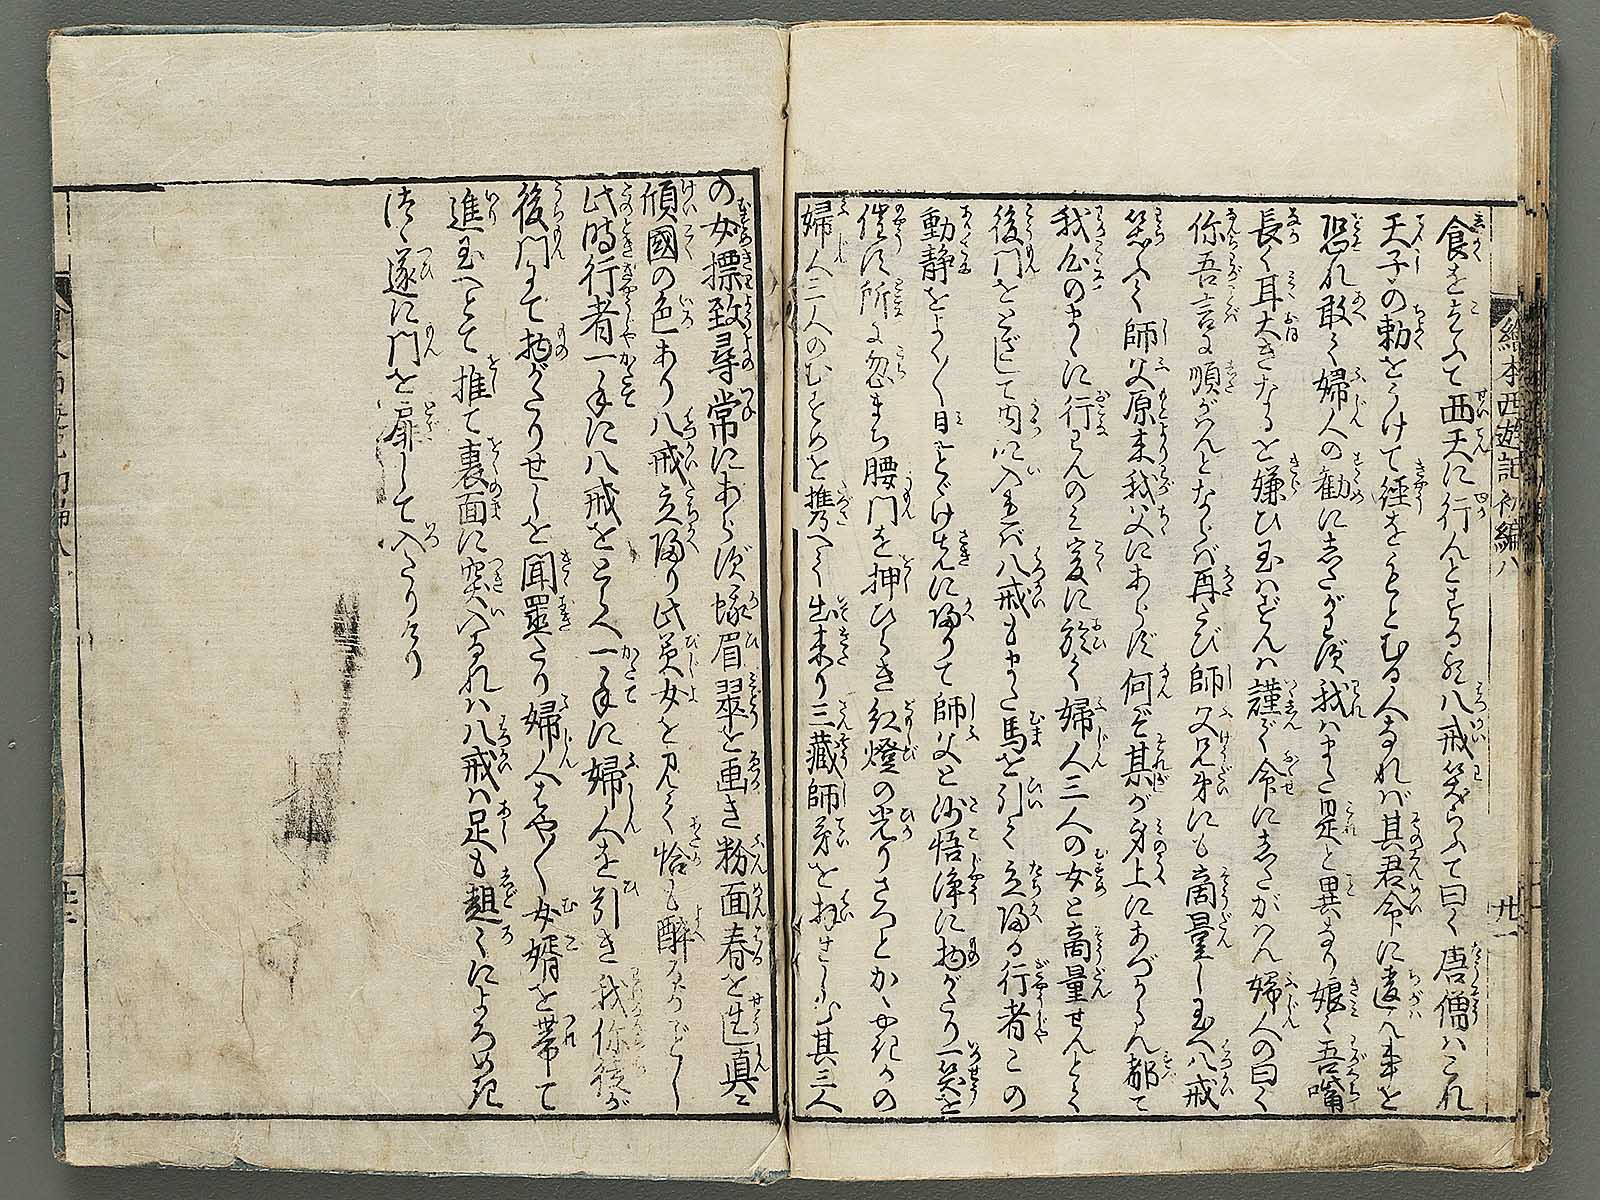 繪本西遊記初編八
廿一
食をきらふて西天に行んとする歟八戒笑らふて曰く唐僧ハこれ
天子の勅をうけて経をもとむる人なれバ其君命に違ハ事を
恐れ敢て婦人の勧にしたがハず我ハまた是と異なり娘々吾嘴
長く耳大きなるを嫌ひ玉ハずんハ謹で命にしたがハん婦人の曰く
你吾言に順がんとならバ再たび師父兄弟にも商量し玉へ八戒
笑ふて師父原来我父にあらず何ぞ某が身上にあづからん都て
我心のまゝに行ハんのミ爰に於て婦人三人の女と商量せんとて
後門をとざして内に入れバ八戒もまた馬を引て立帰る行者この
動静をよく〳〵見とゞけ先に帰りて師父と沙悟浄に物がたり一笑を
催す所に忽まち腰門を押ひらき紅燈の光りさつとかゝやきかの
婦人三人のむすめを携へて出来り三藏師弟を拜せしむ其三人
の女標致尋常にあらず蛾眉翠を画き粉面春を生じ真に
傾國の色あり八戒立帰り此美女を見て恰も酔るがごとし
此時行者一手に八戒をとらへ一手に婦人を引き我你後が
後門にて物がたりせしを聞置たり婦人はやく女婿を帯て
進玉へとて推て裏面に突入るれハ八戒ハ足も趄くによろめき
つゝ遂に門を扉して入たりけり